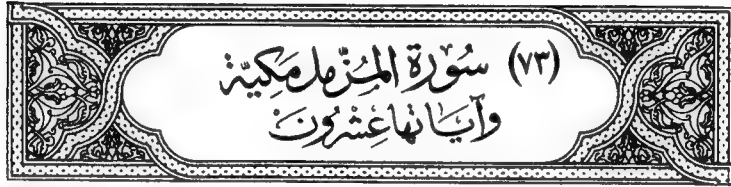 (٧٣) سُوْرَة المُزَّمل مَكِيَّة
وَآيَاتهَا عِشْرُونَ